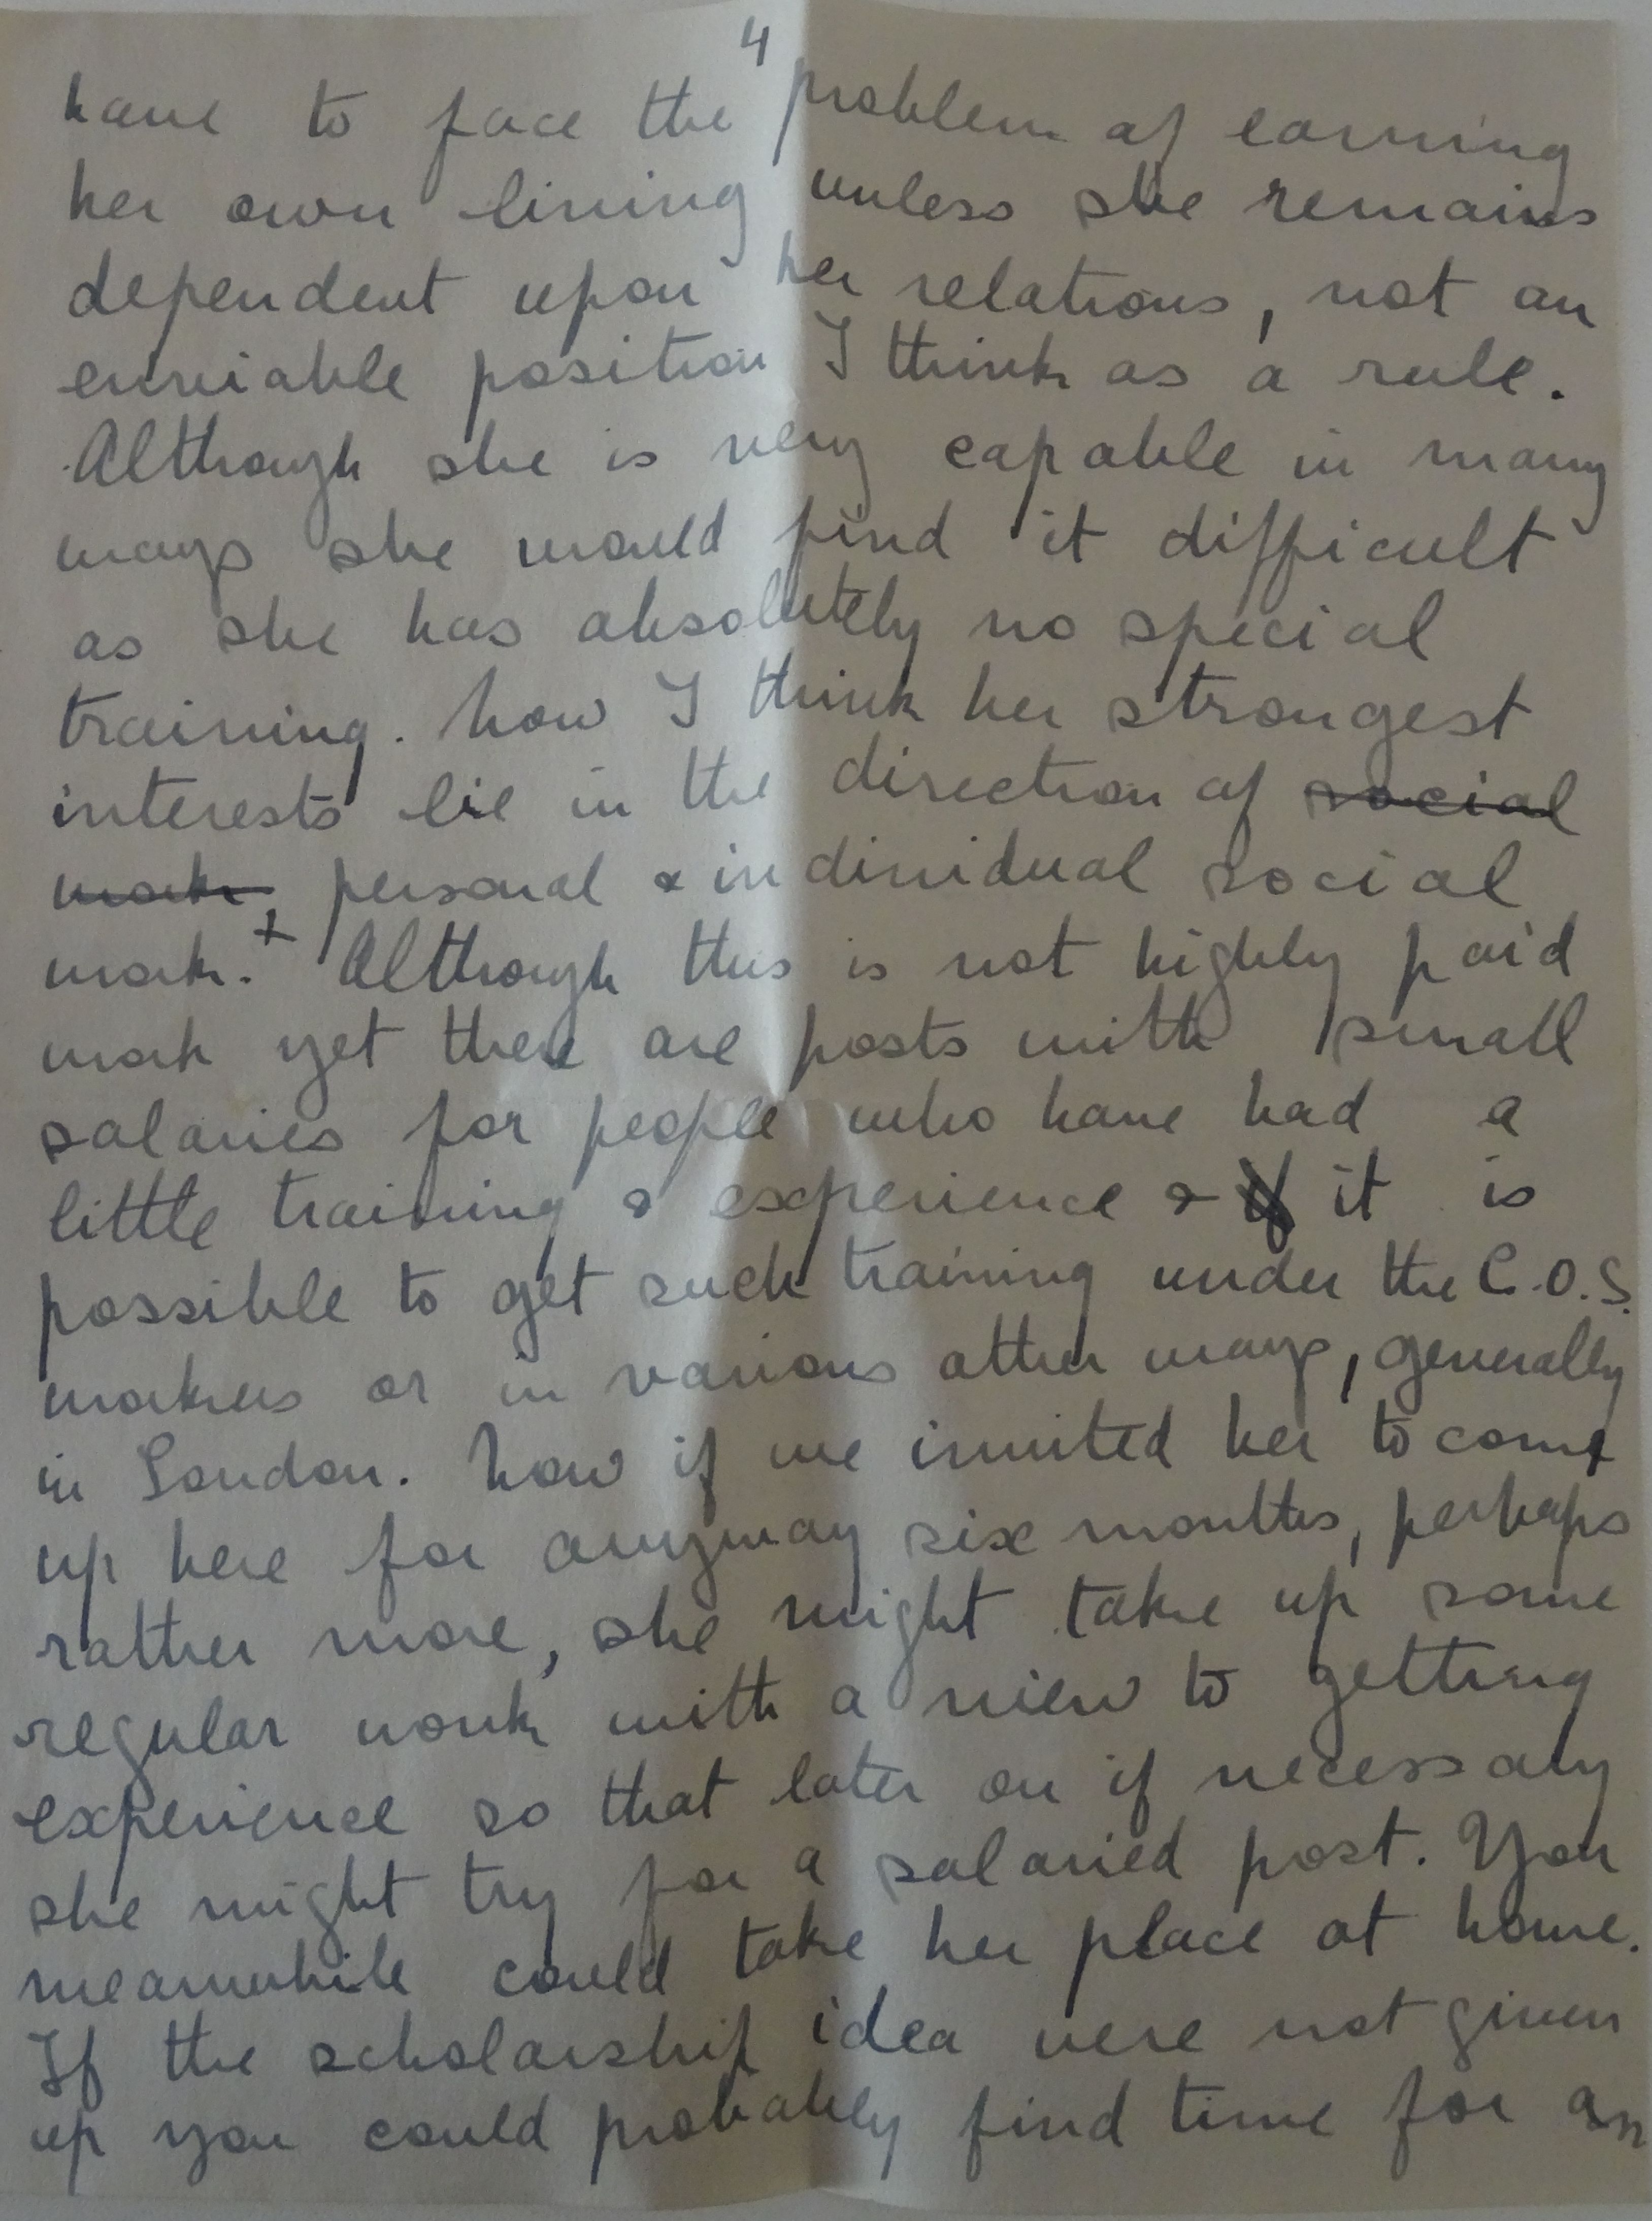 4
have to face the problem of earning
her own living unless she remains
dependent upon her relations, not an
enviable position I think as a rule.
Although she is very capable in many
ways she would find it difficult
as she has absolutely no special
training. Now I think her strongest
interests lie in the direction of social
work, personal & individual social
work.+ Although this is not highly paid
work yet there are posts with small
salaries for people who have had a
little training & experience & if it is
possible to get such training under the C.O.S.
workers or in various other ways, generally
in London. Now if we invited her to come
up here for anyway six months, perhaps
rather more, she might take up some
regular work with a view to getting
experience so that later on if necessary
she might try for a salaried post. You
meanwhile could take her place at home.
If the scholarship idea were not given
up you could probably find time for an